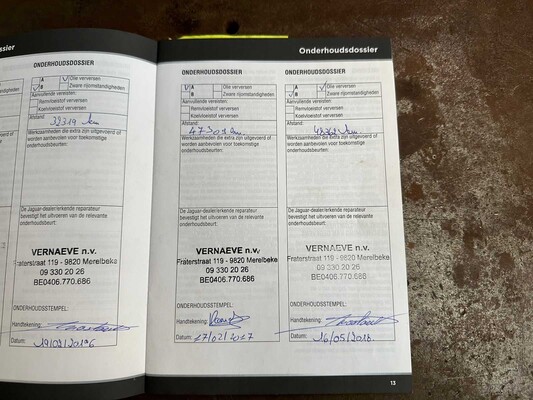 ossier
Onderhoudsdossier
standigheden
ONDERHOUDSDOSSIER
A
Olie verversen
B
Zware rijomstandigheden
Aanvullende vereisten:
Remvloeistof verversen
Koelvloeistof verversen
Afstand:
39319 km
Werkzaamheden die extra zijn uitgevoerd of
worden aanbevolen voor toekomstige
onderhoudsbeurten:
De Jaguar-dealer/erkende reparateur
bevestigt het uitvoeren van de relevante
onderhoudsbeurt:
VERNAEVE n.v.
Fraterstraat 119 - 9820 Merelbeke
09 330 20 26
BE0406.770.686
ONDERHOUDSSTEMPEL:
Handtekening:
Datum: 19/02/2016
ONDERHOUDSDOSSIER
A
Olie verversen
B
Zware rijomstandigheden
Aanvullende vereisten:
Remvloeistof verversen
Koelvloeistof verversen
Afstand:
47302 km
Werkzaamheden die extra zijn uitgevoerd of
worden aanbevolen voor toekomstige
onderhoudsbeurten:
De Jaguar-dealer/erkende reparateur
bevestigt het uitvoeren van de relevante
onderhoudsbeurt:
VERNAEVE n.v.
Fraterstraat 119 - 9820 Merelbeke
09 330 20 26
BE0406.770.686
ONDERHOUDSSTEMPEL:
Handtekening:
Datum: 27/02/2017
ONDERHOUDSDOSSIER
A
Olie verversen
B
Zware rijomstandigheden
Aanvullende vereisten:
Remvloeistof verversen
Koelvloeistof verversen
Afstand:
km
Werkzaamheden die extra zijn uitgevoerd of
worden aanbevolen voor toekomstige
onderhoudsbeurten:
De Jaguar-dealer/erkende reparateur
bevestigt het uitvoeren van de relevante
onderhoudsbeurt:
VERNAEVE n.v.
Fraterstraat 119 - 9820 Merelbeke
09 330 20 26
BE0406.770.686
ONDERHOUDSSTEMPEL:
Handtekening:
Datum: 16/05/2018.
13